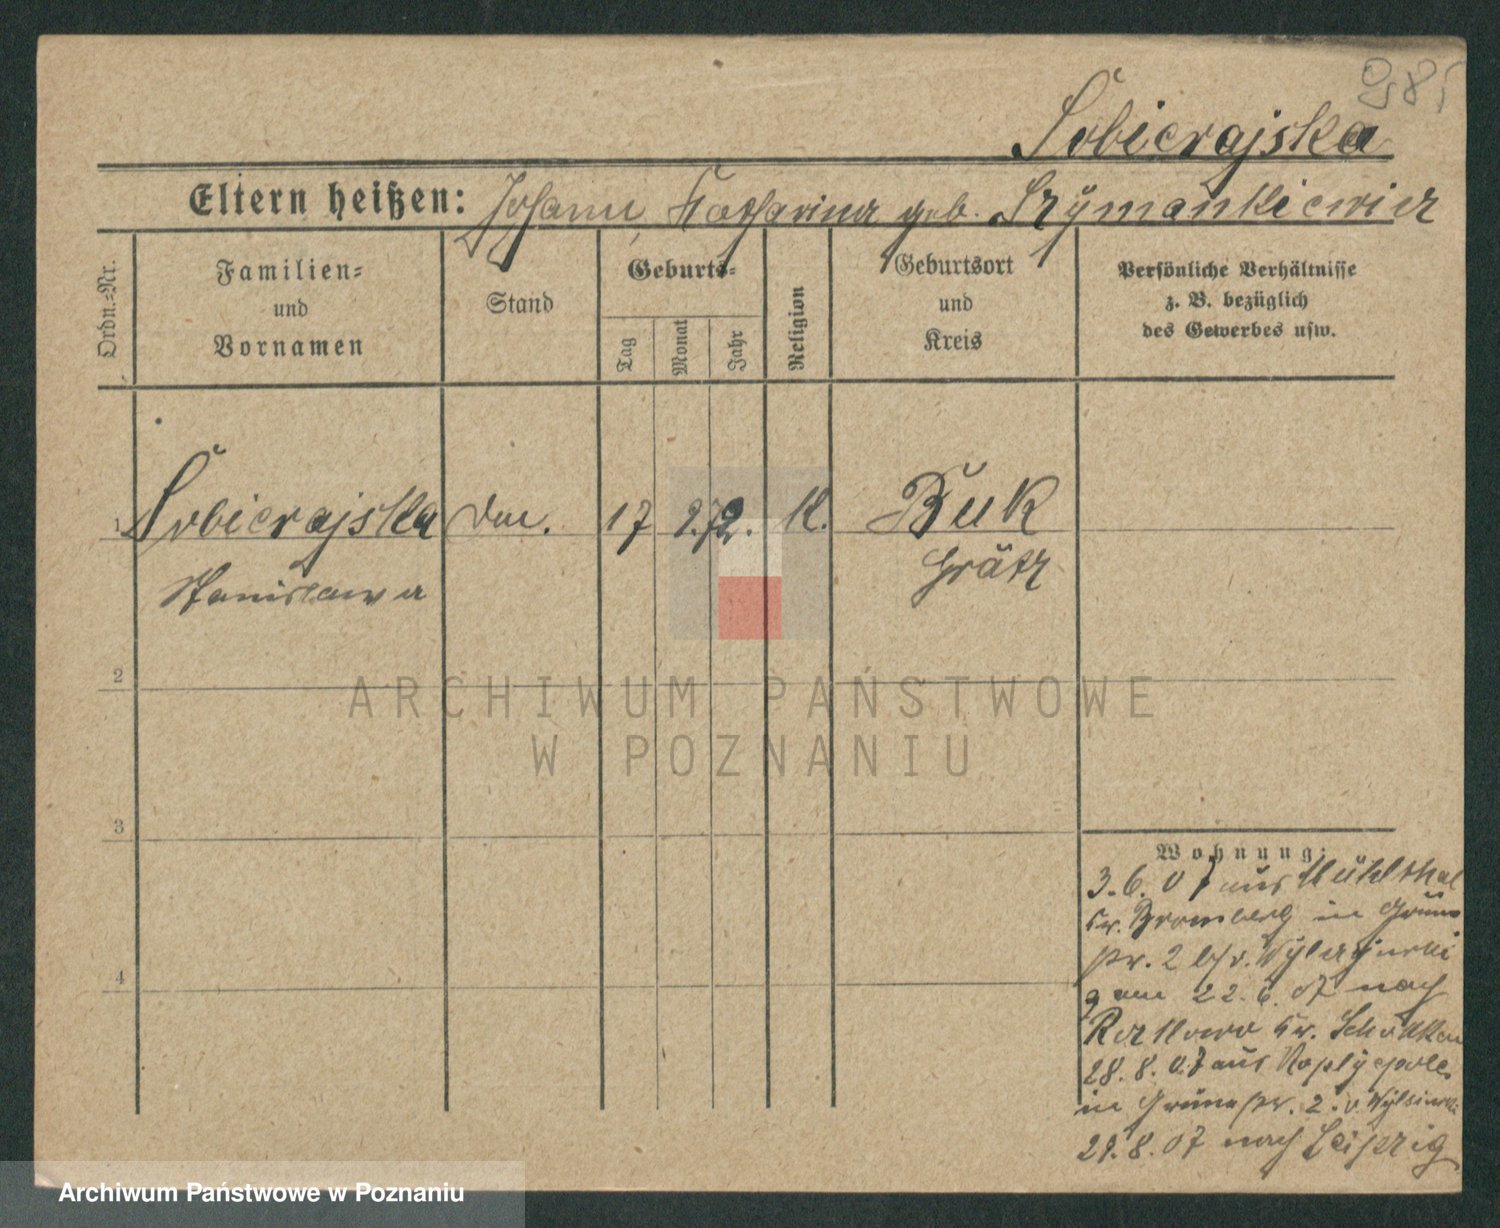 985
Sobierajska
Eltern heißen: Johann, Katharina geb. Szymankiewicz
Ordn.-Nr.
Familien-
und
Vornamen
Stand
Geburts-
Tag
Monat
Jahr
Religion
Geburtsort
und
Kreis
Persönliche Verhältnisse
z. B. bezüglich
des Gewerbes usw.
1 Sobierajska 17 2. 72. K. Buk
Stanislawa Grätz
2
3
4
Wohnung:
3.6.07 aus Mühlthal
Kr. Bromberg in Grüne
str. 2 b/ v.
am 22.6.07 nach
Kr. Schokken
28.8.07 aus
in Grünestr. 2. v.
29.8.07 nach Leipzig
ARCHIWUM PAŃSTWOWE
W POZNANIU
Archiwum Państwowe w Poznaniu